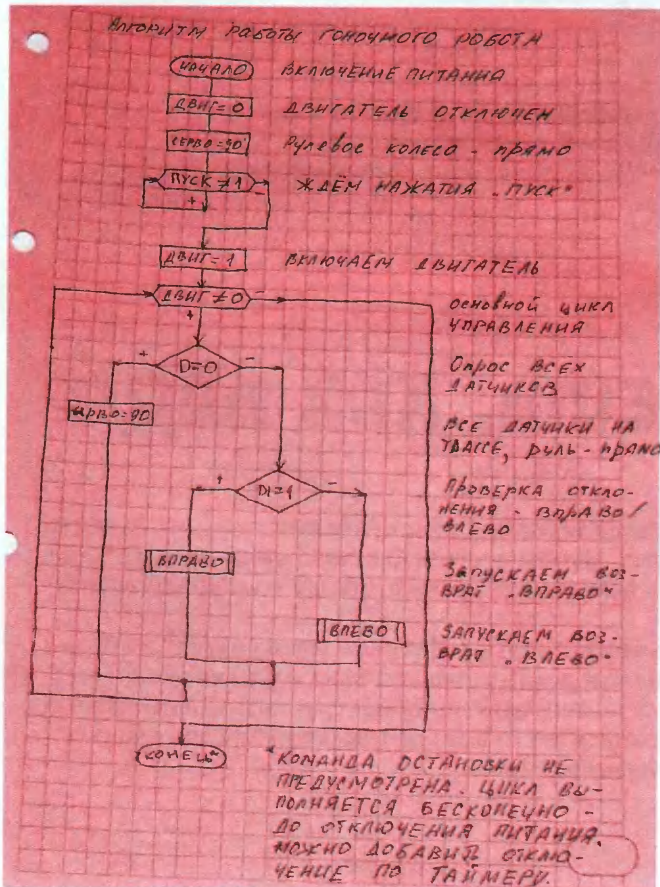 АЛГОРИТМ РАБОТЫ ГОНОЧНОГО РОБОТА
НАЧАЛО ВКЛЮЧЕНИЕ ПИТАНИЯ
ДВИГ=0 ДВИГАТЕЛЬ ОТКЛЮЧЕН
СЕРВО=90° РУЛЕВОЕ КОЛЕСО - ПРЯМО
ПУСК≠1 ЖДЁМ НАЖАТИЯ "ПУСК"
+ -
ДВИГ=1 ВКЛЮЧАЕМ ДВИГАТЕЛЬ
ДВИГ≠0 -
+
ОСНОВНОЙ ЦИКЛ
УПРАВЛЕНИЯ
+ D=0 -
ОПРОС ВСЕХ
ДАТЧИКОВ
СЕРВО=90
ВСЕ ДАТЧИКИ НА
ТРАССЕ, РУЛЬ - ПРЯМО
+ D1=1 -
ПРОВЕРКА ОТКЛО-
НЕНИЯ - ВПРАВО/
ВЛЕВО
ВПРАВО
ЗАПУСКАЕМ ВОЗ-
ВРАТ "ВПРАВО"
ВЛЕВО
ЗАПУСКАЕМ ВОЗ-
ВРАТ "ВЛЕВО"
КОНЕЦ*
*КОМАНДА ОСТАНОВКИ НЕ
ПРЕДУСМОТРЕНА. ЦИКЛ ВЫ-
ПОЛНЯЕТСЯ БЕСКОНЕЧНО -
ДО ОТКЛЮЧЕНИЯ ПИТАНИЯ.
МОЖНО ДОБАВИТЬ ОТКЛЮ-
ЧЕНИЕ ПО ТАЙМЕРУ.